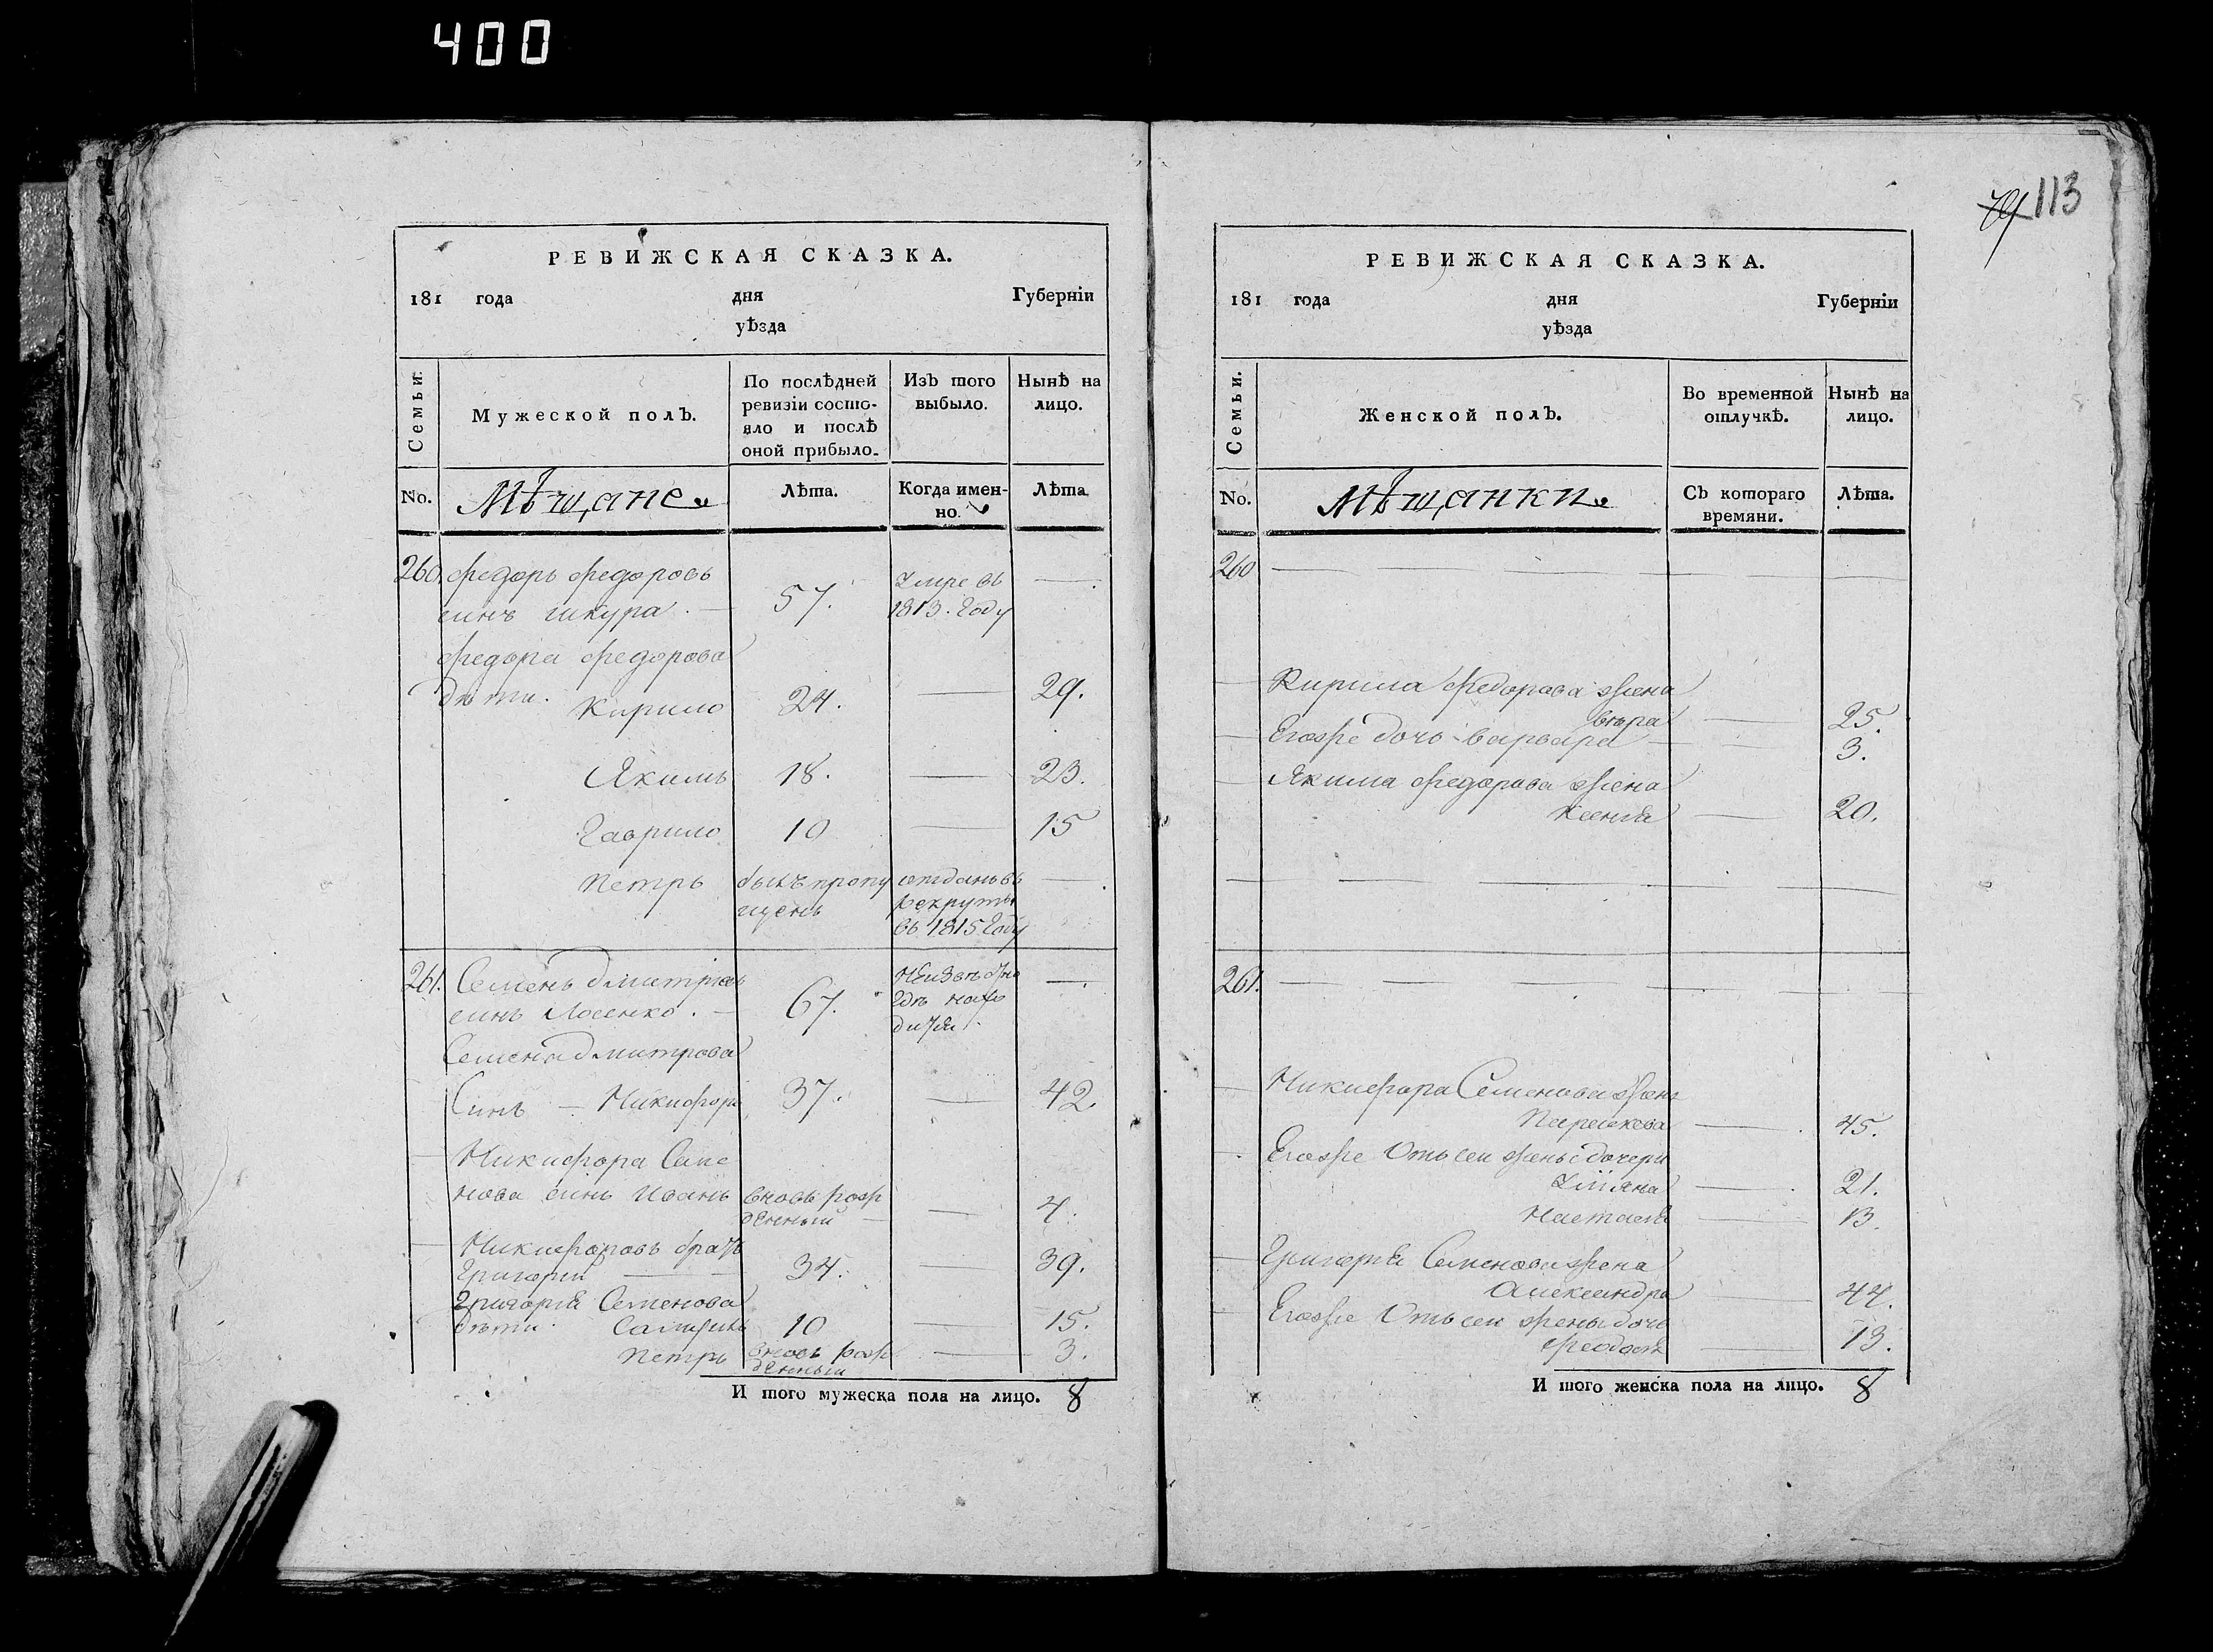 400
79 113
РЕВИЖСКАЯ СКАЗКА.
181 года дня Губерніи
уѣзда
Семьи. Мужеской полъ. По послѣдней ревизіи состояло и послѣ оной прибыло. Изъ того выбыло. Нынѣ на лицо.
No. Мѣщане Лѣта. Когда именно. Лѣта
260 Федоръ Федоровъ Умре въ
синъ шкура. 57. 1813. Году
Федора Федорова
дѣти. Кирило 24. 29.
Якимъ 18. 23.
Гаврило 10 15
Петръ былъ пропу отданъ въ
щенъ рекруты
въ 1815 Году
261. Семенъ Дмитріевъ Неизвѣстно
синъ Лосенко. 67. Гдѣ нахо
дится.
Семена Дмитрова
Синъ Никифоръ 37. 42.
Никифора Семе
нова синъ Иванъ вновь рож 4.
денный
Никифоровъ братъ
Григорій 34. 39.
Григорія Семенова
дѣти. 10 15.
Петръ вновь рож 3.
денный
И того мужеска пола на лицо. 8
РЕВИЖСКАЯ СКАЗКА.
181 года дня Губерніи
уѣзда
Семьи. Женской полъ. Во временной отлучкѣ. Нынѣ на лицо.
No. Мѣщанки Съ котораго времяни. Лѣта.
260
Кирила Федорова жена
вѣра 25.
Егоже дочь варвара 3.
Якима Федорова жена
Ксенія 20.
261.
Никифора Семенова жена
Парасковя 45.
Егоже Отъ сей жены дочери
Уліяна 21.
Настасія 13.
Григорія Семенова жена
Александра 44.
Егоже Отъ сей жены дочь
Феодосія 13.
И того женска пола на лицо. 8